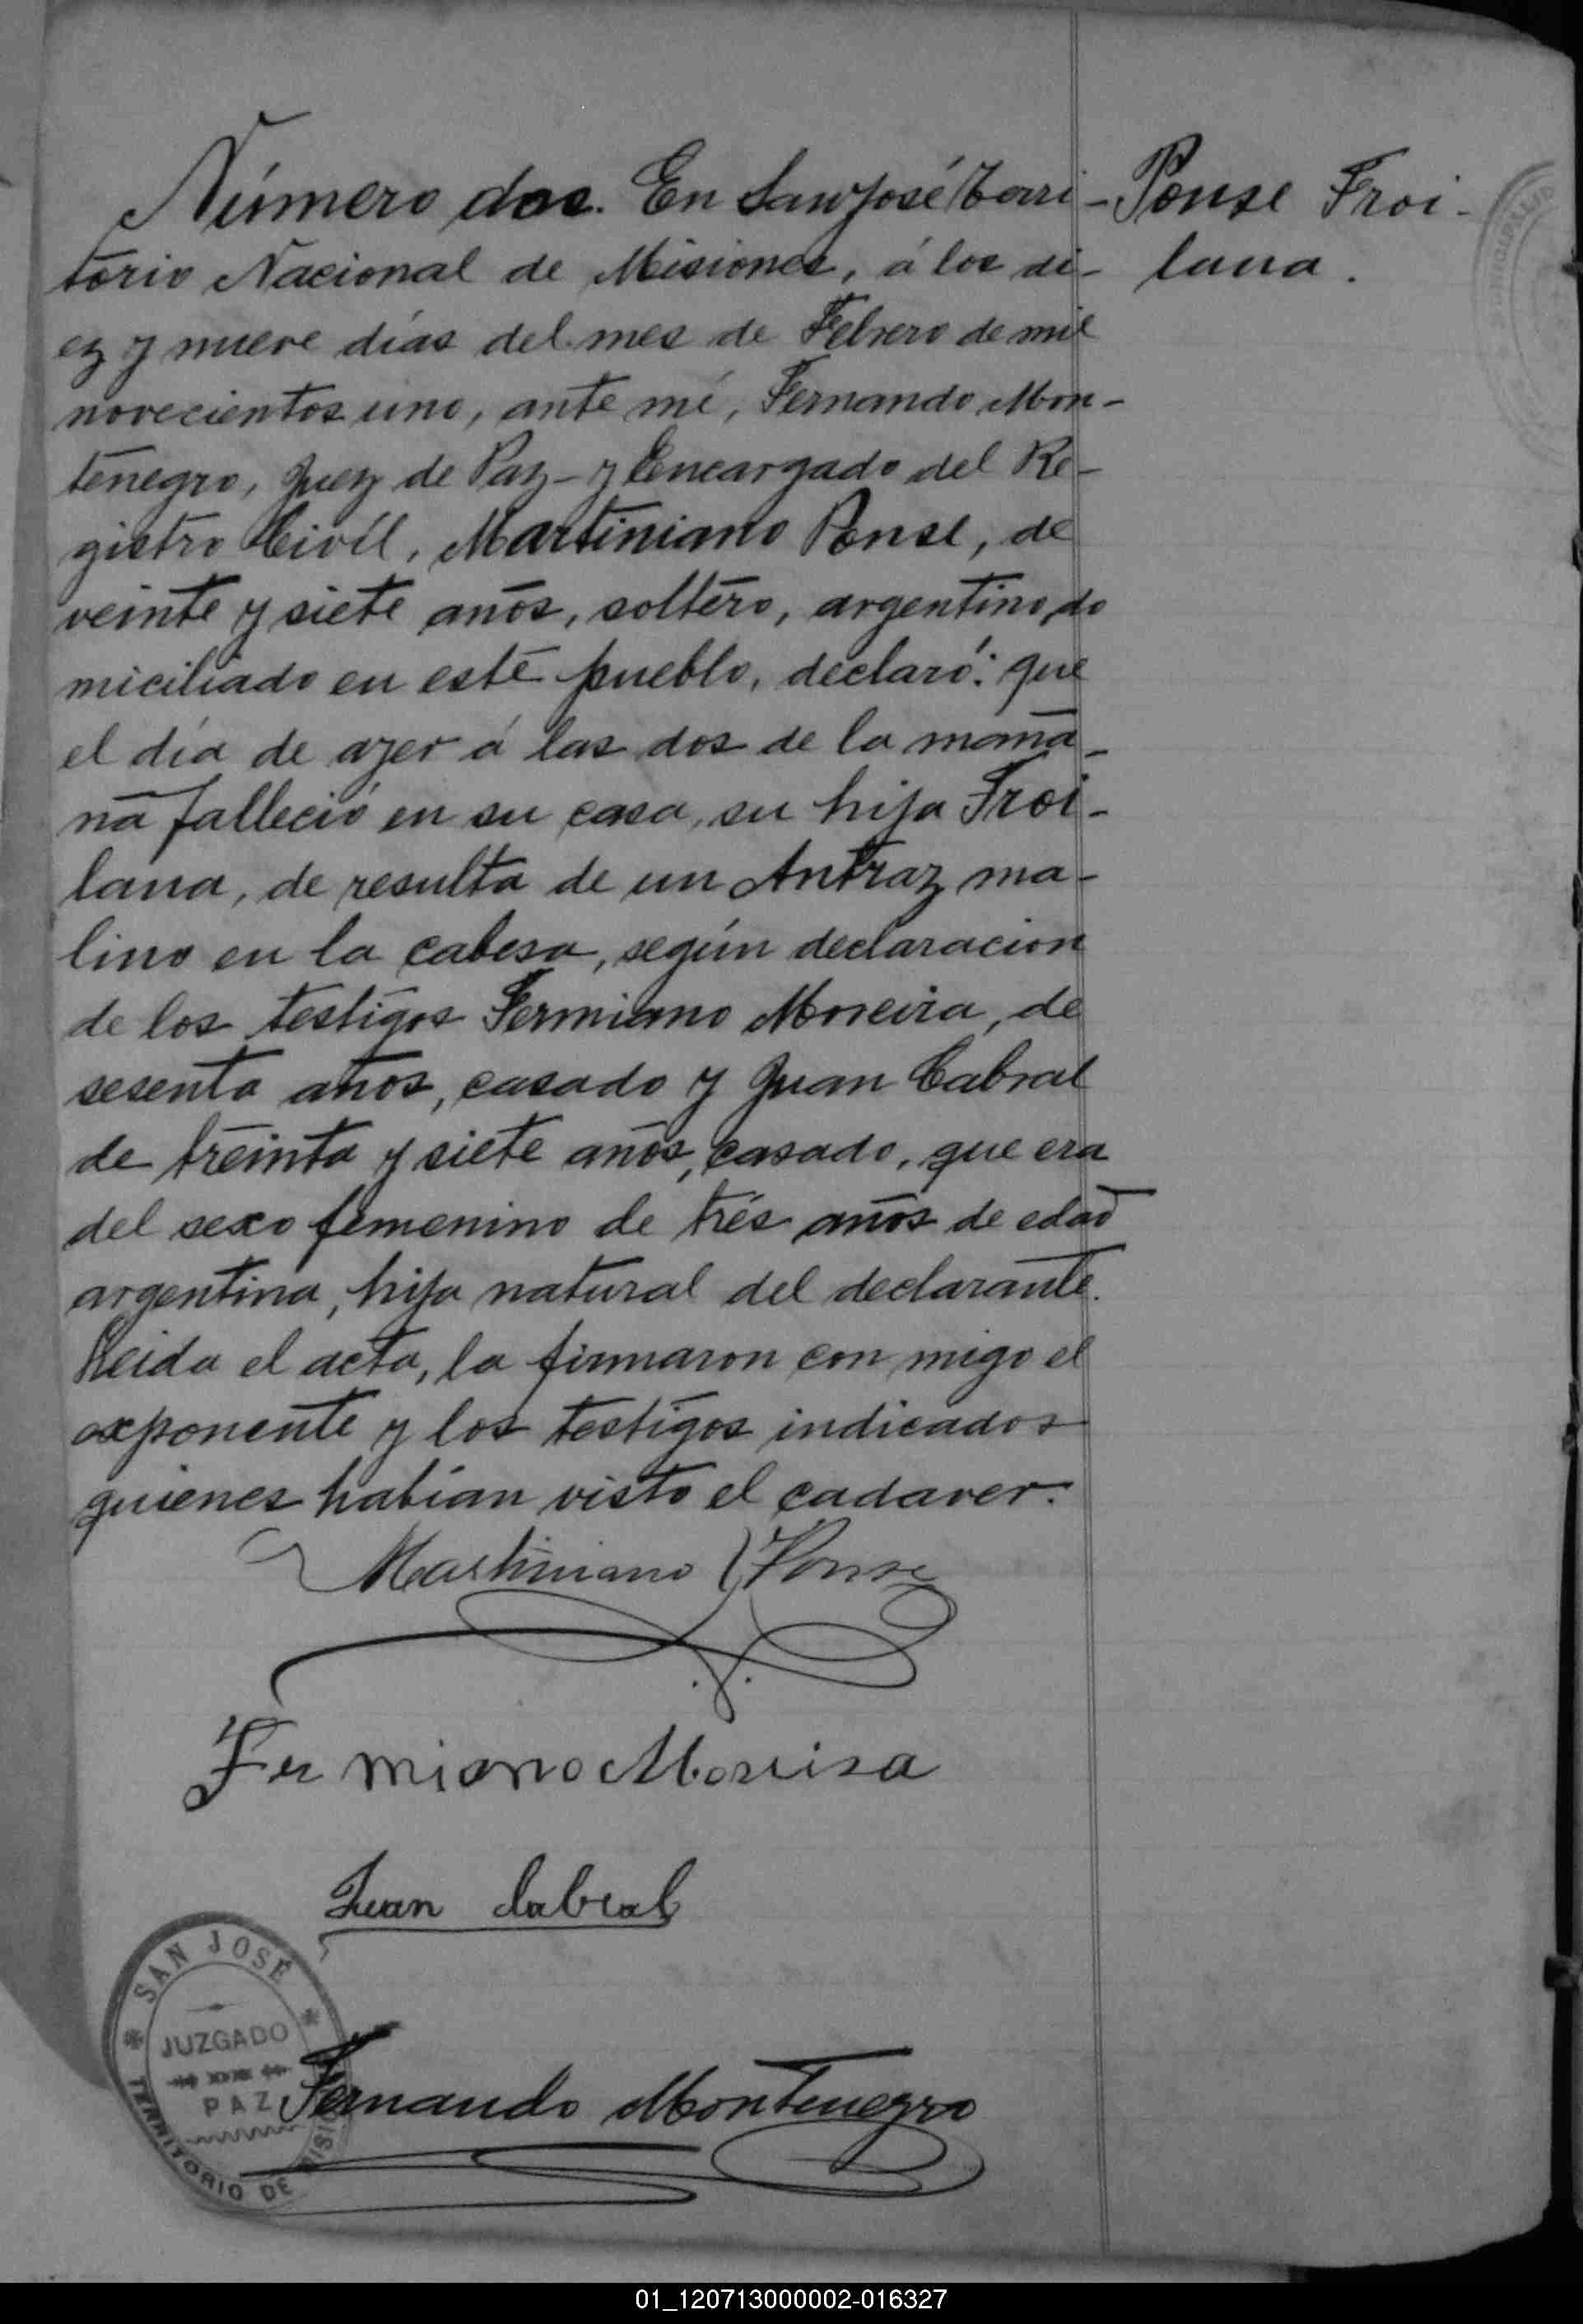 Número dos. En San José Terri-
torio Nacional de Misiones, á los di-
ez y nueve días del mes de Febrero de mil
novecientos uno, ante mí, Fernando Mon-
tenegro, Juez de Paz y Encargado del Re-
gistro Civíl, Martiniano Ponse, de
veinte y siete años, soltero, argentino, do
miciliado en este pueblo, declaró: que
el día de ayer á las dos de la maña-
na falleció en su casa, su hija Froi-
lana, de resulta de un Antraz ma-
lino en la cabesa, según declaracion
de los testigos Fermiano Moreira, de
sesenta años, casado y Juan Cabral
de treinta y siete años, casado, que era
del sexo femenino de trés años de edad
argentina, hija natural del declarante.
Leida el acta, la firmaron con migo el
exponente y los testigos indicados
quienes habían visto el cadaver.
Ponse Froi-
lana.
Martiniano Ponse
Fermiano Moreira
Juan Cabral
SAN JOSÉ
JUZGADO
PAZ
TERRITORIO DE MISIONES
Fernando Montenegro
01_120713000002-016327